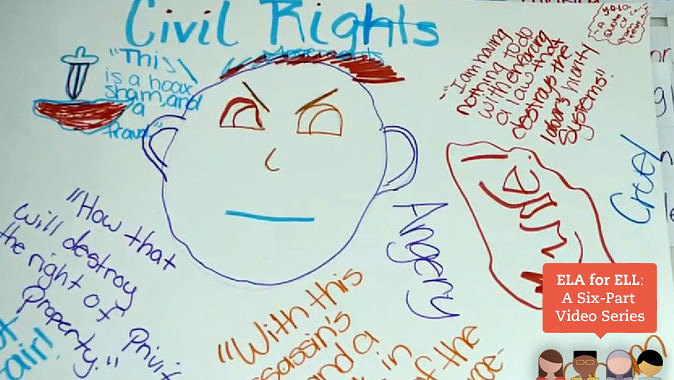 Civil Rights
"This
is a hoax
sham, and
a
fraud."
"I am having
nothing to do
with enforcing
a law that
destroys the
labour's hiarity
Systems."
Cruel
"How that
will destroy
the right of Privit
Property."
Angery
"With this
assassin's
and a
in
of the
fair!
ELA for ELL:
A Six-Part
Video Series